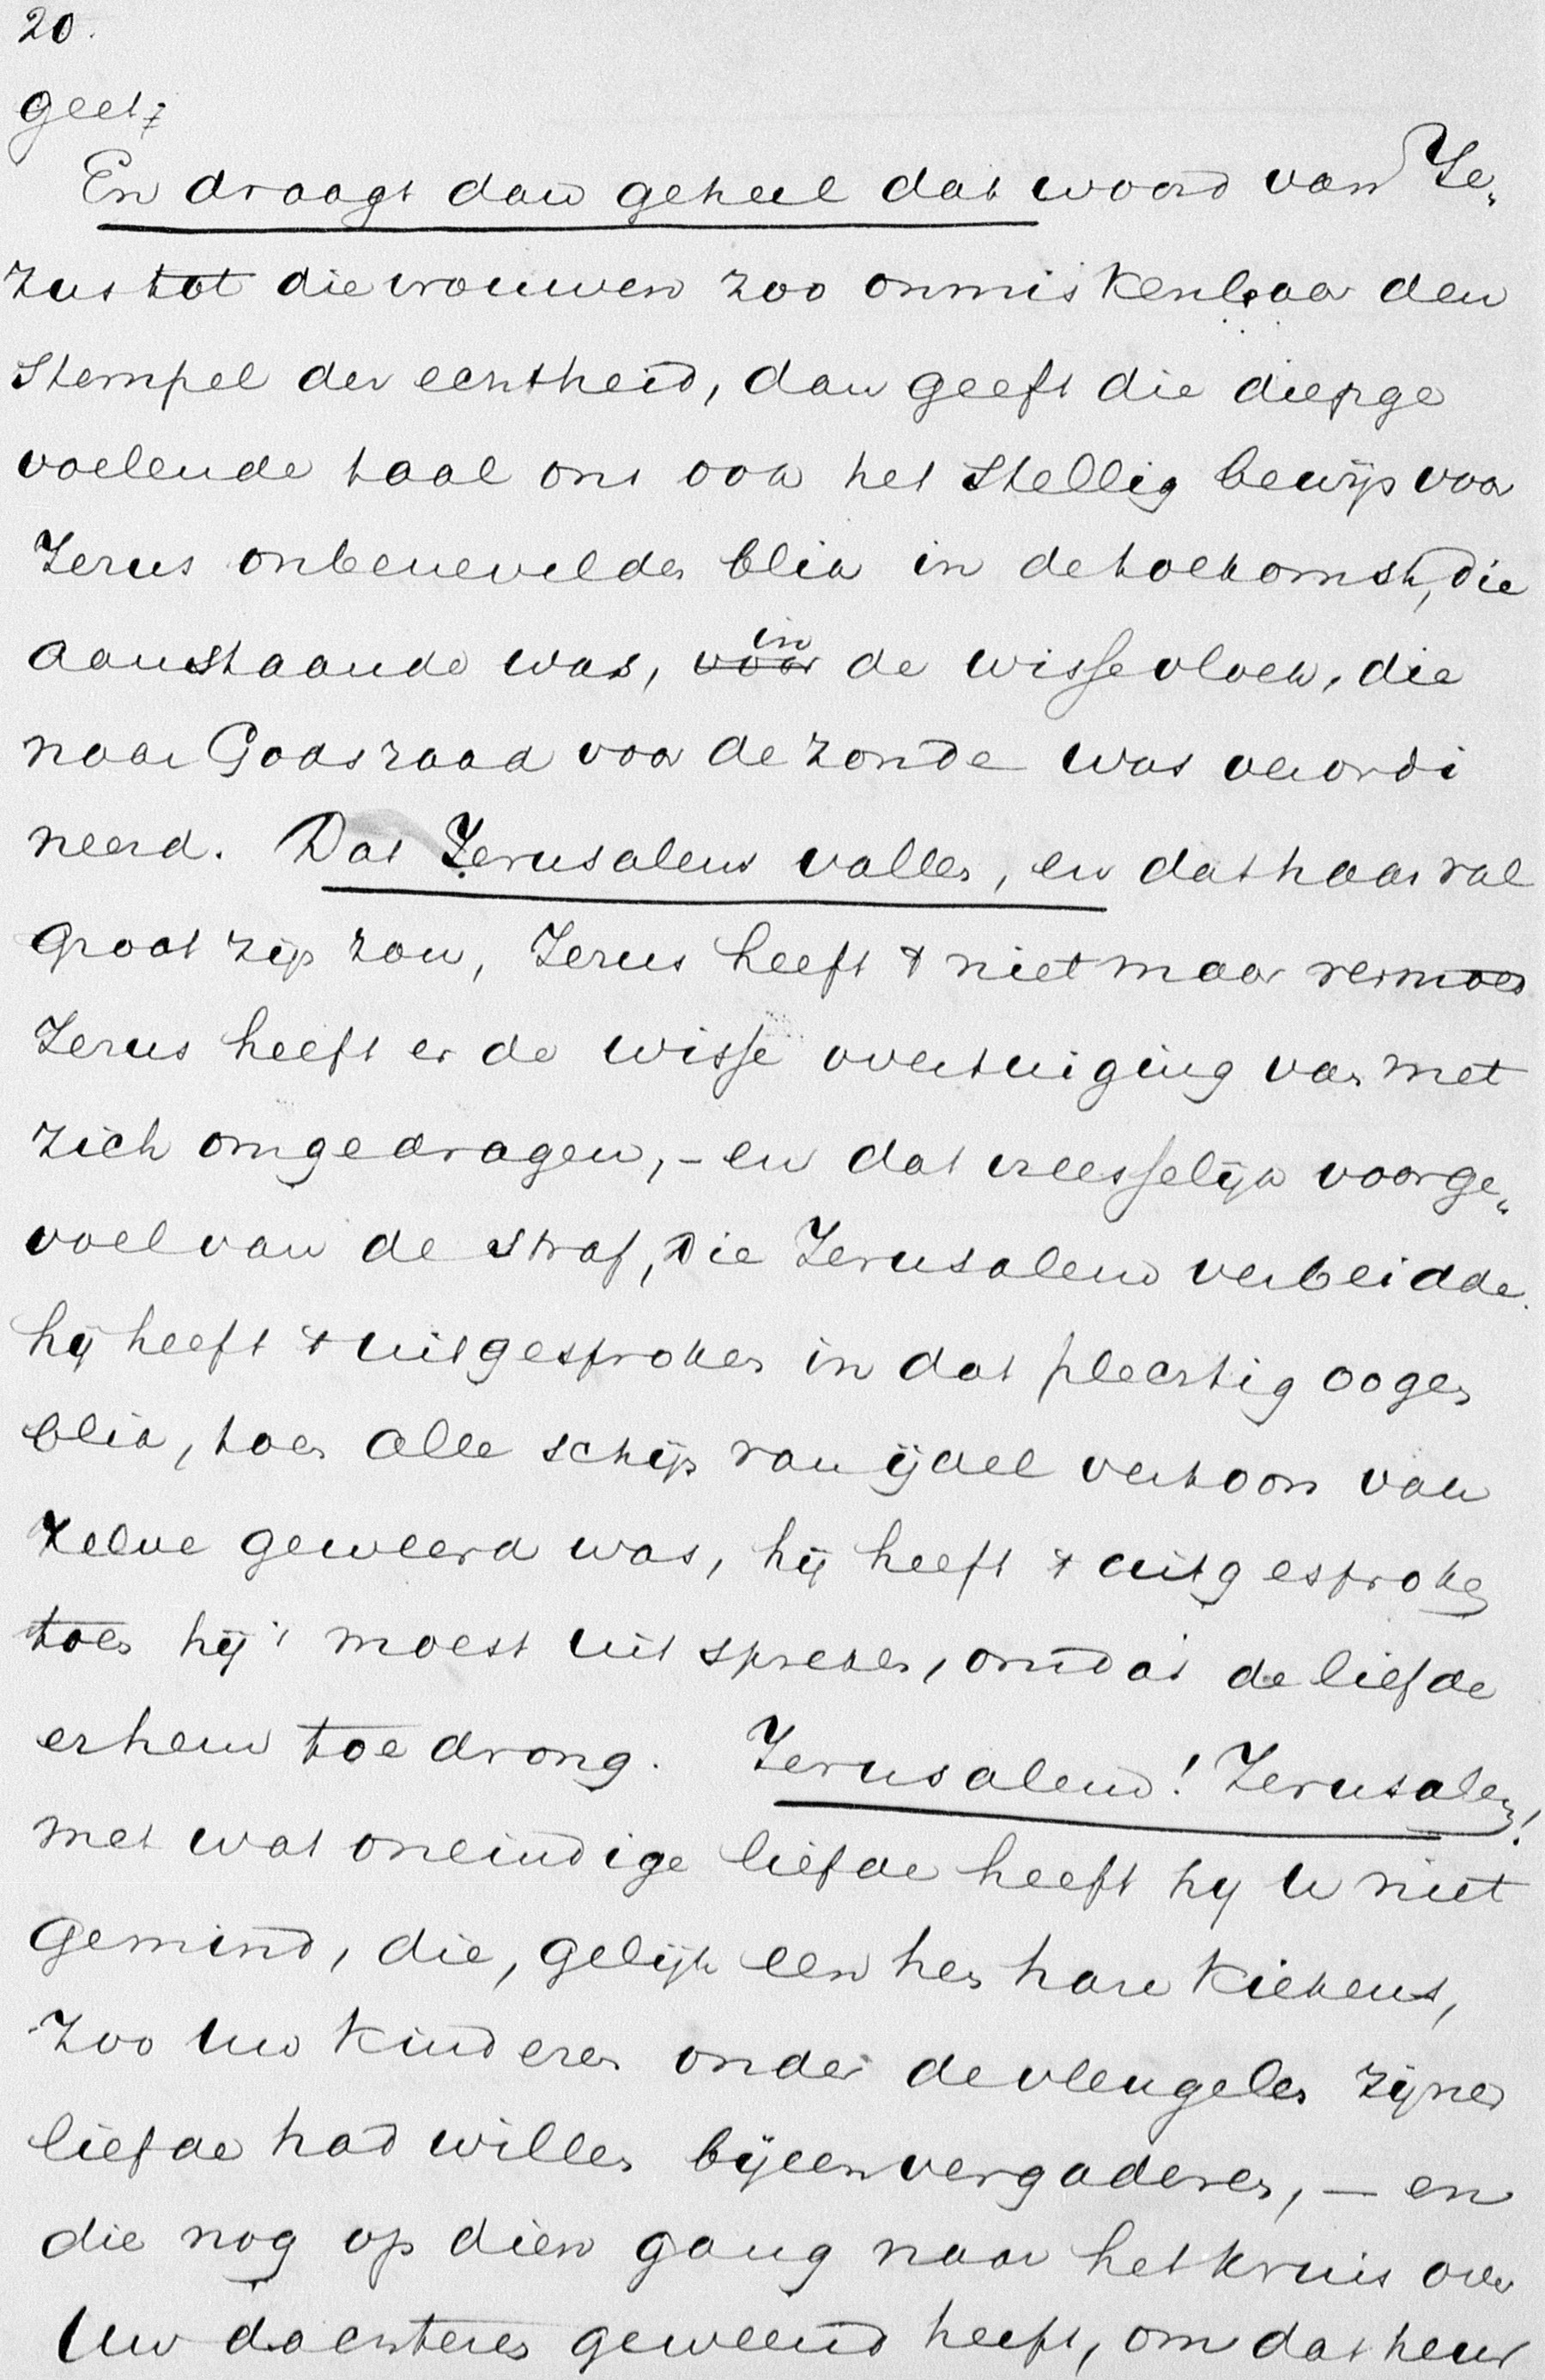 20.
geet,
En draagt dan geheel dat woord van Je„
zus tot die vrouwen zoo onmiskenbaar den
stempel der echtheid, dan geeft die diepge
voelende taal ons ook het stellig bewijs voor
Jezus onbenevelden blik in de toekomst, die
aanstaande was, voor in de wisse vloek, die
naar Gods raad voor de zonde was verordi
neerd. Dat Jeruzalem vallen, en dat haar val
groot zijn zou, Jezus heeft 't niet maar vermoed
Jezus heeft er de wisse overtuiging van met
zich omgedragen, – en dat vreesselijk voorge„
voel van de straf, die Jerusalem verbeidde.
hij heeft 't uitgesproken in dat plechtig oogen
blik, toen alle schijn van ijdel vertoon van
zelve geweerd was, hij heeft 't uitgesproken
toen hij 't moest uitspreken, omdat de liefde
er hem toe drong. Jerusalem! Jerusalem!
met wat oneindige liefde heeft hij U niet
gemind, die, gelijk een hen hare kiekens,
zoo Uw kinderen onder de vleugelen zijner
liefde had willen bijeenvergaderen, — en
die nog op dien gang naar het kruis over
Uw dochteren geweend heeft, om dat heur